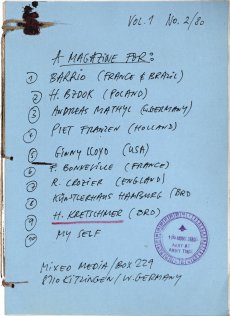 VOL. 1 NO. 2/80
A MAGAZINE FOR:
1 BARRIO (FRANCE & BRAZIL)
2 H. BZDOK (POLAND)
3 ANDREAS MATHYL (GERMANY)
4 PIET FRANZEN (HOLLAND)
5 GINNY LLOYD (USA)
6 F. BONNEVILLE (FRANCE)
7 R. CROZIER (ENGLAND)
8 KÜNSTLERHAUS HAMBURG (BRD
9 H. KRETSCHMER (BRD)
10 MY SELF
MIXED MEDIA/BOX 229
8710 KITZINGEN/W. GERMANY